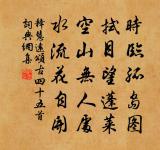 時臨孤島
拭目望蓬萊
空山無人處
水流花自開
釋慧遠頌古四十五首
詞典網集